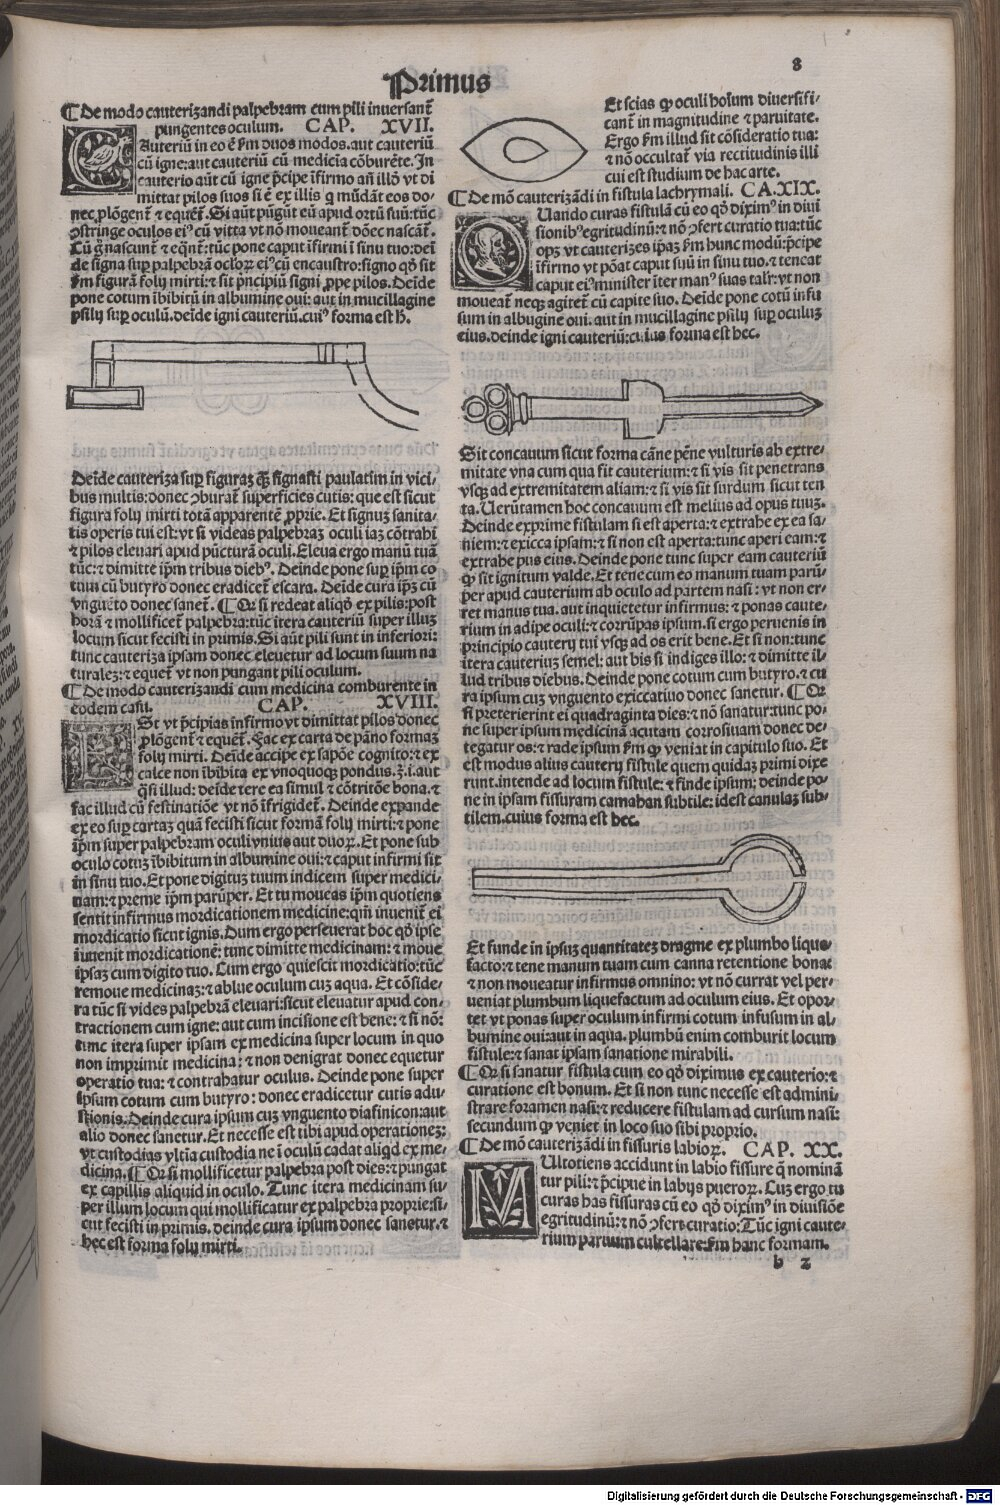 Primus
8
¶ De modo cauterizandi palpebram cum pili inversant̃
pungentes oculum. CAP. XVII.
CAuteriũ in eo ẽ fm duos modos. aut cauteriũ
cũ igne: aut cauteriũ cũ medicĩa cõburẽte. In
cauterio aũt cũ igne p̃cipe ĩfirmo añ illõ vt di
mittat pilos suos si ẽ ex illis q̃ mũdãt eos do-
nec plõgent̃ ⁊ equẽt̃. Si aũt pũgũt eũ apud ortũ suũ: tũc
ꝯstringe oculos eiꝰ cũ vitta vt nõ moueant̃ dõec nascãt̃.
Cũ g̃ nascunt̃ ⁊ eq̃nt̃: tũc pone caput ĩfirmi ĩ sinu tuo: deĩ
de signa sup palpebrã oculoꝝ eiꝰ cũ encaustro: signo qđ sit
fm figurã folij mirti: ⁊ sit pñcipiũ signi ꝓpe pilos. Deĩde
pone cotum ĩbibitũ in albumine oui: aut in mucillagine
psilij sup oculũ. deĩde igni cauteriũ. cuiꝰ forma est h̃.
Deĩde cauteriza sup figuraꝫ quã signasti paulatim in vici-
bus multis: donec ꝯburat̃ superficies cutis: que est sicut
figura folij mirti totã apparentẽ ꝓprie. Et signuꝫ sanita-
tis operis tui est: vt si videas palpebraꝫ oculi iaꝫ cõtrahi
⁊ pilos eleuari apud pũcturã oculi. Eleua ergo manũ tuã
tũc: ⁊ dimitte ip̃m tribus diebꝰ. Deinde pone sup ip̃m co
tum cũ butyro donec eradicet̃ escara. Deĩde cura ip̃ꝫ cũ
vnguẽto donec sanet̃. ¶ Qr si redeat aliqđ ex pilis: post
horã ⁊ mollificet̃ palpebra: tũc itera cauteriũ super illuꝫ
locum sicut fecisti in primis. Si aũt pili sunt in inferiori:
tunc cauteriza ipsam donec eleuetur ad locum suum na
turalẽ: ⁊ equet̃ vt non pungant pili oculum.
¶ De modo cauterizandi cum medicina comburente in
eodem casu. CAP. XVIII.
ESt vt p̃cipias infirmo vt dimittat pilos donec
plõgent̃ ⁊ equẽt̃. Fac ex carta de pãno formaꝫ
folij mirti. Deĩde accipe ex sapõe cognito: ⁊ ex
calce non ĩbibita ex vnoquoqꝫ pondus. ʒ. i. aut
q̃si illud: deĩde tere ea simul ⁊ cõtritõe bona. ⁊
fac illud cũ festinatiõe vt nõ ĩfrigidet̃. Deinde expande
ex eo sup cartaꝫ quã fecisti sicut formã folij mirti: ⁊ pone
ip̃m super palpebram oculi vnius aut duoꝝ. Et pone sub
oculo cotuꝫ ĩbibitum in albumine oui: ⁊ caput infirmi sit
in sinu tuo. Et pone digituꝫ tuum indicem super medici-
nam: ⁊ preme ip̃m parũper. Et tu moueas ip̃m quotiens
sentit infirmus mordicationem medicine: qm̃ inuenit̃ ei
mordicatio sicut ignis. Dum ergo perseuerat hoc qđ ipse
iuuenit mordicationẽ: tunc dimitte medicinam: ⁊ moue
ipsaꝫ cum digito tuo. Cum ergo quiescit mordicatio: tũc
remoue medicinaꝫ: ⁊ ablue oculum cuꝫ aqua. Et cõside-
ra tũc si vides palpebrã eleuari: sicut eleuatur apud con-
tractionem cum igne: aut cum incisione est bene: ⁊ si nõ:
tunc itera super ipsam ex medicina super locum in quo
non imprimit medicina: ⁊ non denigrat donec equetur
operatio tua: ⁊ contrahatur oculus. Deinde pone super
ipsum cotum cum butyro: donec eradicetur cutis adu-
stionis. Deinde cura ipsum cuꝫ vnguento diafinicon: aut
alio donec sanetur. Et necesse est tibi apud operationeꝫ:
vt custodias vltĩa custodia ne ĩ oculũ cadat aliqđ ex me-
dicina. ¶ Qr si mollificetur palpebra post dies: ⁊ pungat
ex capillis aliquid in oculo. Tunc itera medicinam su-
per illum locum qui mollificatur ex palpebra proprie: si-
cut fecisti in primis. deinde cura ipsum donec sanetur. ⁊
hec est forma folij mirti.
Et scias qꝫ oculi hoĩum diuersifi-
cant̃ in magnitudine ⁊ paruitate.
Ergo fm illud sit cõsideratio tua:
⁊ nõ occultat̃ via rectitudinis illi
cui est studium de hac arte.
¶ De mõ cauterizãdi in fistula lachrymali. CA. XIX.
QUando curas fistulã cũ eo qđ diximꝰ in diui
sionibꝰ egritudinũ: ⁊ nõ ꝯfert curatio tua: tũc
opꝫ vt cauterizes ip̃aꝫ fm hunc modũ: p̃cipe
ĩfirmo vt põat caput suũ in sinu tuo. ⁊ teneat
caput eiꝰ minister ĩter manꝰ suas talr̃: vt non
moueat̃ neqꝫ agitet̃ cũ capite suo. Deĩde pone cotũ infu
sum in albugine oui. aut in mucillagine psilij sup oculuꝫ
eius. deinde igni cauteriũ: cuius forma est hec.
Sit concauum sicut forma cãne pẽne vulturis ab extre-
mitate vna cum qua fit cauterium: ⁊ si vis sit penetrans
vsqꝫ ad extremitatem aliam: ⁊ si vis sit surdum sicut ten
ta. Uerũtamen hoc concauum est melius ad opus tuuꝫ.
Deinde exprime fistulam si est aperta: ⁊ extrahe ex ea sa-
niem: ⁊ exicca ipsam: ⁊ si non est aperta: tunc aperi eam: ⁊
extrahe pus eius. Deinde pone tunc super eam cauteriũ
qꝫ sit ignitum valde. Et tene cum eo manum tuam parũ-
per apud cauterium ab oculo ad partem nasi: vt non er-
ret manus tua. aut inquietetur infirmus: ⁊ ponas caute-
rium in adipe oculi: ⁊ corrũpas ipsum. si ergo peruenis in
principio cauterij tui vsqꝫ ad os erit bene. Et si non: tunc
itera cauteriuꝫ semel: aut bis si indiges illo: ⁊ dimitte il-
lud tribus diebus. Deinde pone cotum cum butyro. ⁊ cu
ra ipsum cuꝫ vnguento exiccatiuo donec sanetur. ¶ Qr
si preterierint ei quadraginta dies: ⁊ nõ sanatur: tunc po-
ne super ipsum medicinã acutam corrosiuam donec de-
tegatur os: ⁊ rade ipsum fm qꝫ veniat in capitulo suo. Et
est modus alius cauterij fistule quem quidaꝫ primi dixe
runt. intende ad locum fistule: ⁊ finde ipsum: deinde po-
ne in ipsam fissuram camahan subtile: idest canulaꝫ sub-
tilem. cuius forma est hec.
Et funde in ipsuꝫ quantitateꝫ dragme ex plumbo lique-
facto: ⁊ tene manum tuam cum canna retentione bona:
⁊ non moueatur infirmus omnino: vt nõ currat vel per-
ueniat plumbum liquefactum ad oculum eius. Et opor-
tet vt ponas super oculum infirmi cotum infusum in al-
bumine oui: aut in aqua. plumbũ enim comburit locum
fistule: ⁊ sanat ipsam sanatione mirabili.
¶ Qr si sanatur fistula cum eo qđ diximus ex cauterio: ⁊
curatione est bonum. Et si non tunc necesse est admini-
strare foramen nasi: ⁊ reducere fistulam ad cursum nasi:
secundum qꝫ veniet in loco suo sibi proprio.
¶ De mõ cauterizãdi in fissuris labioꝝ. CAP. XX.
MUltotiens accidunt in labio fissure q̃ nominã
tur pili: ⁊ p̃cipue in labijs pueroꝝ. Cuꝫ ergo tu
curas has fissuras cũ eo qđ diximꝰ in diuisiõe
egritudinũ: ⁊ nõ ꝯfert curatio: Tũc igni caute-
rium paruum cultellare: fm hanc formam.
b 2
Digitalisierung gefördert durch die Deutsche Forschungsgemeinschaft - DFG